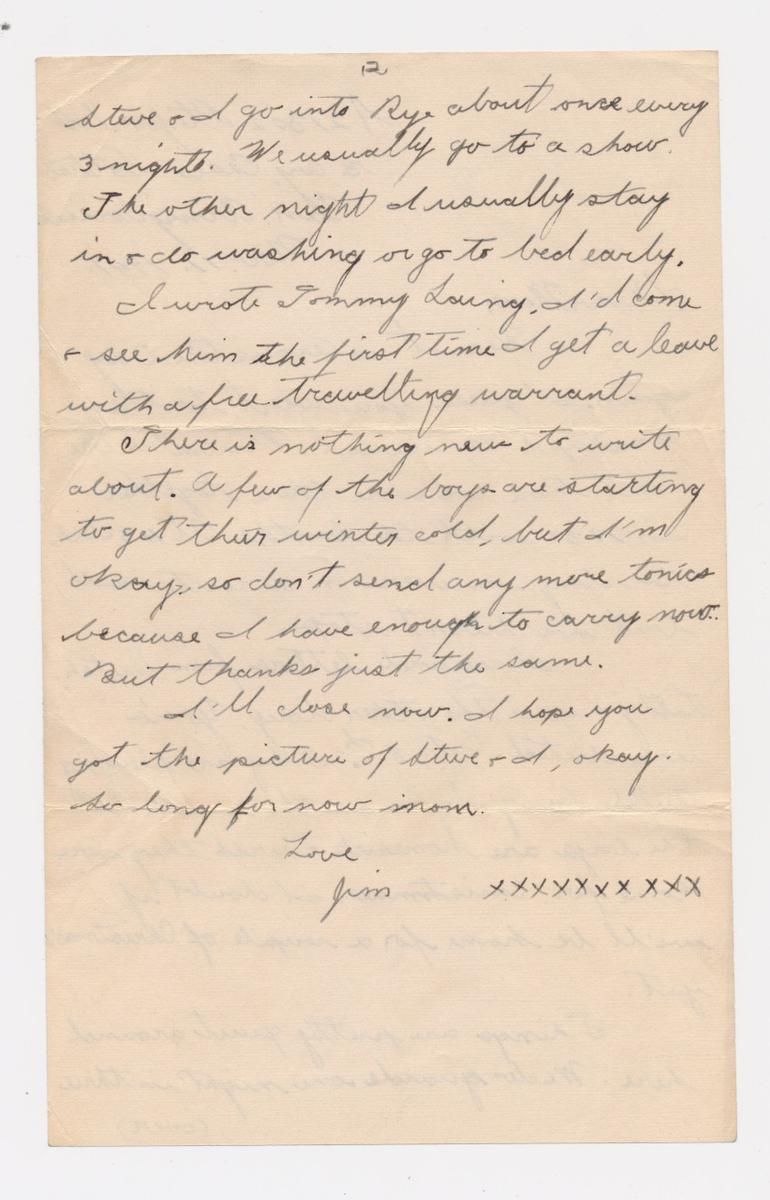 12
Steve & I go into Rye about once every
3 nights. We usually go to a show.
The other night I usually stay
in & do washing or go to bed early.
I wrote Tommy Laing, I'd come
& see him the first time I get a leave
with a free travelling warrant.
There is nothing new to write
about. A few of the boys are starting
to get their winter cold, but I'm
okay, so don't send any more tonics
because I have enough to carry now.
But thanks just the same.
I'll close now. I hope you
got the picture of Steve & I, okay.
So long for now mom.
Love
Jim xxxxxxxxxxx